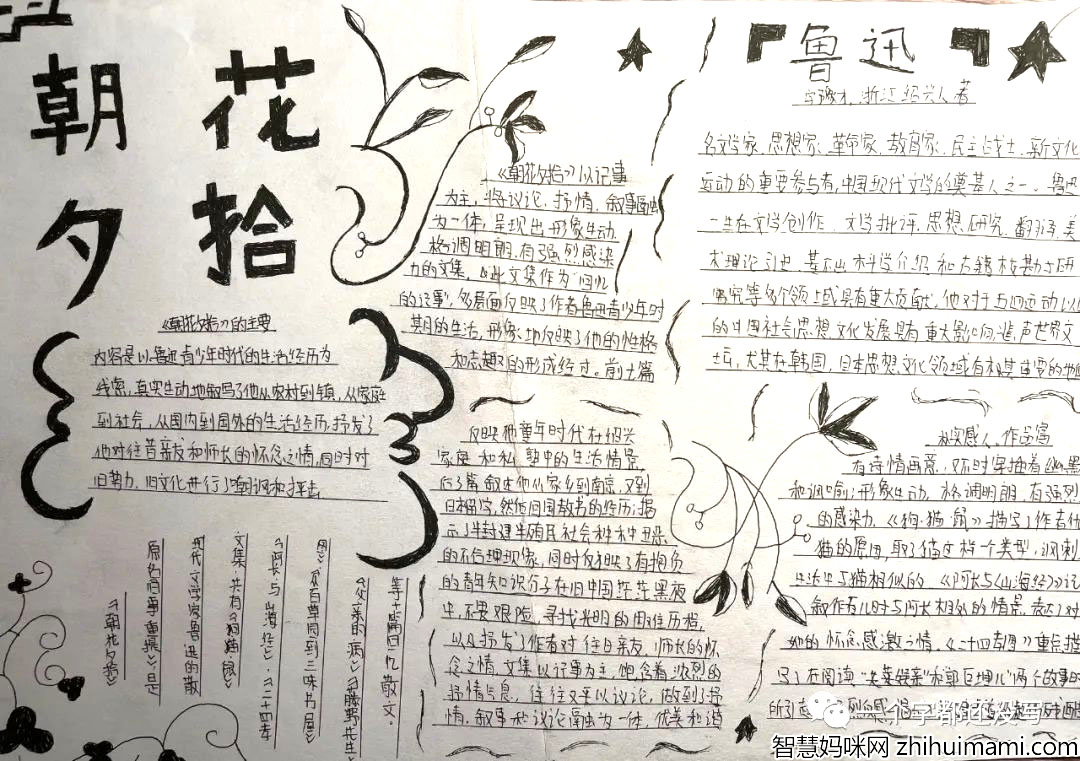 朝花
夕拾
《朝花夕拾》的主要
内容是以鲁迅青少年时代的生活经历为
线索，真实生动地叙写了他从农村到镇，从家庭
到社会，从国内到国外的生活经历，抒发了
他对往昔亲友和师长的怀念之情，同时对
旧势力、旧文化进行了嘲讽和抨击
《朝花夕拾》
原名旧事重提》，是
现代文学家鲁迅的散
文集，共有《狗猫鼠
《阿长与山海经》《二十四孝
图》《从百草园到三味书屋》
《父亲的病》《藤野先生
等十篇回忆散文.
《朝花夕拾》以记事
为主，将议论、抒情、叙事融
为一体，呈现出形象生动
格调明朗，有强烈感染
力的文集，此文集作为"回忆
的记事"，多层面反映了作者鲁迅青少年时
期的生活，形象地反映了他的性格
和志趣的形成经过。前七篇
反映他童年时代在绍兴
家庭和私塾中的生活情景，
后三篇叙述他从家乡到南京，又到
日本留学，然后回国教书的经历；揭
示了半封建半殖民社会种种丑恶
的不合理现象，同时反映了有抱负
的青年知识分子在旧中国茫茫黑夜
中，不畏艰险，寻找光明的困难历程，
以及抒发了作者对往日亲友、师长的怀
念之情，文集以记事为主，饱含着浓烈的
抒情气息，往往又夹以议论，做到了抒
情、叙事和议论融为一体，优美和谐
鲁迅
字豫才，浙江绍兴人著
名文学家、思想家；革命家、教育家、民主战士、新文化
运动的重要参与者，中国现代文学的奠基人之一。鲁迅
一生在文学创作、文学批评、思想、研究、翻译、美
术理论引进、基础科学介绍和古籍校勘与研
究等多个领域具有重大贡献，他对于五四运动以
的中国社会思想文化发展具有重大影响，蜚声世界文
坛，尤其在韩国，日本思想文化领域有极其重要的地位
朴实感人、作品富
有诗情画意，不时穿插着幽默
和讽喻；形象生动，格调明朗，有强烈
的感染力，《狗·猫·鼠》描写了作者仇
猫的原因，取了猫这样一个类型，讽刺
生活中与猫相似的，《阿长与《山海经》》记
叙作者儿时与阿长相处的情景，表达了对
她的怀念感激之情，《二十四孝图》重点描
写了在阅读"老莱娱亲"和"郭巨埋儿"两个故事时
个字都还没写
智慧妈咪网 zhihuimami.com